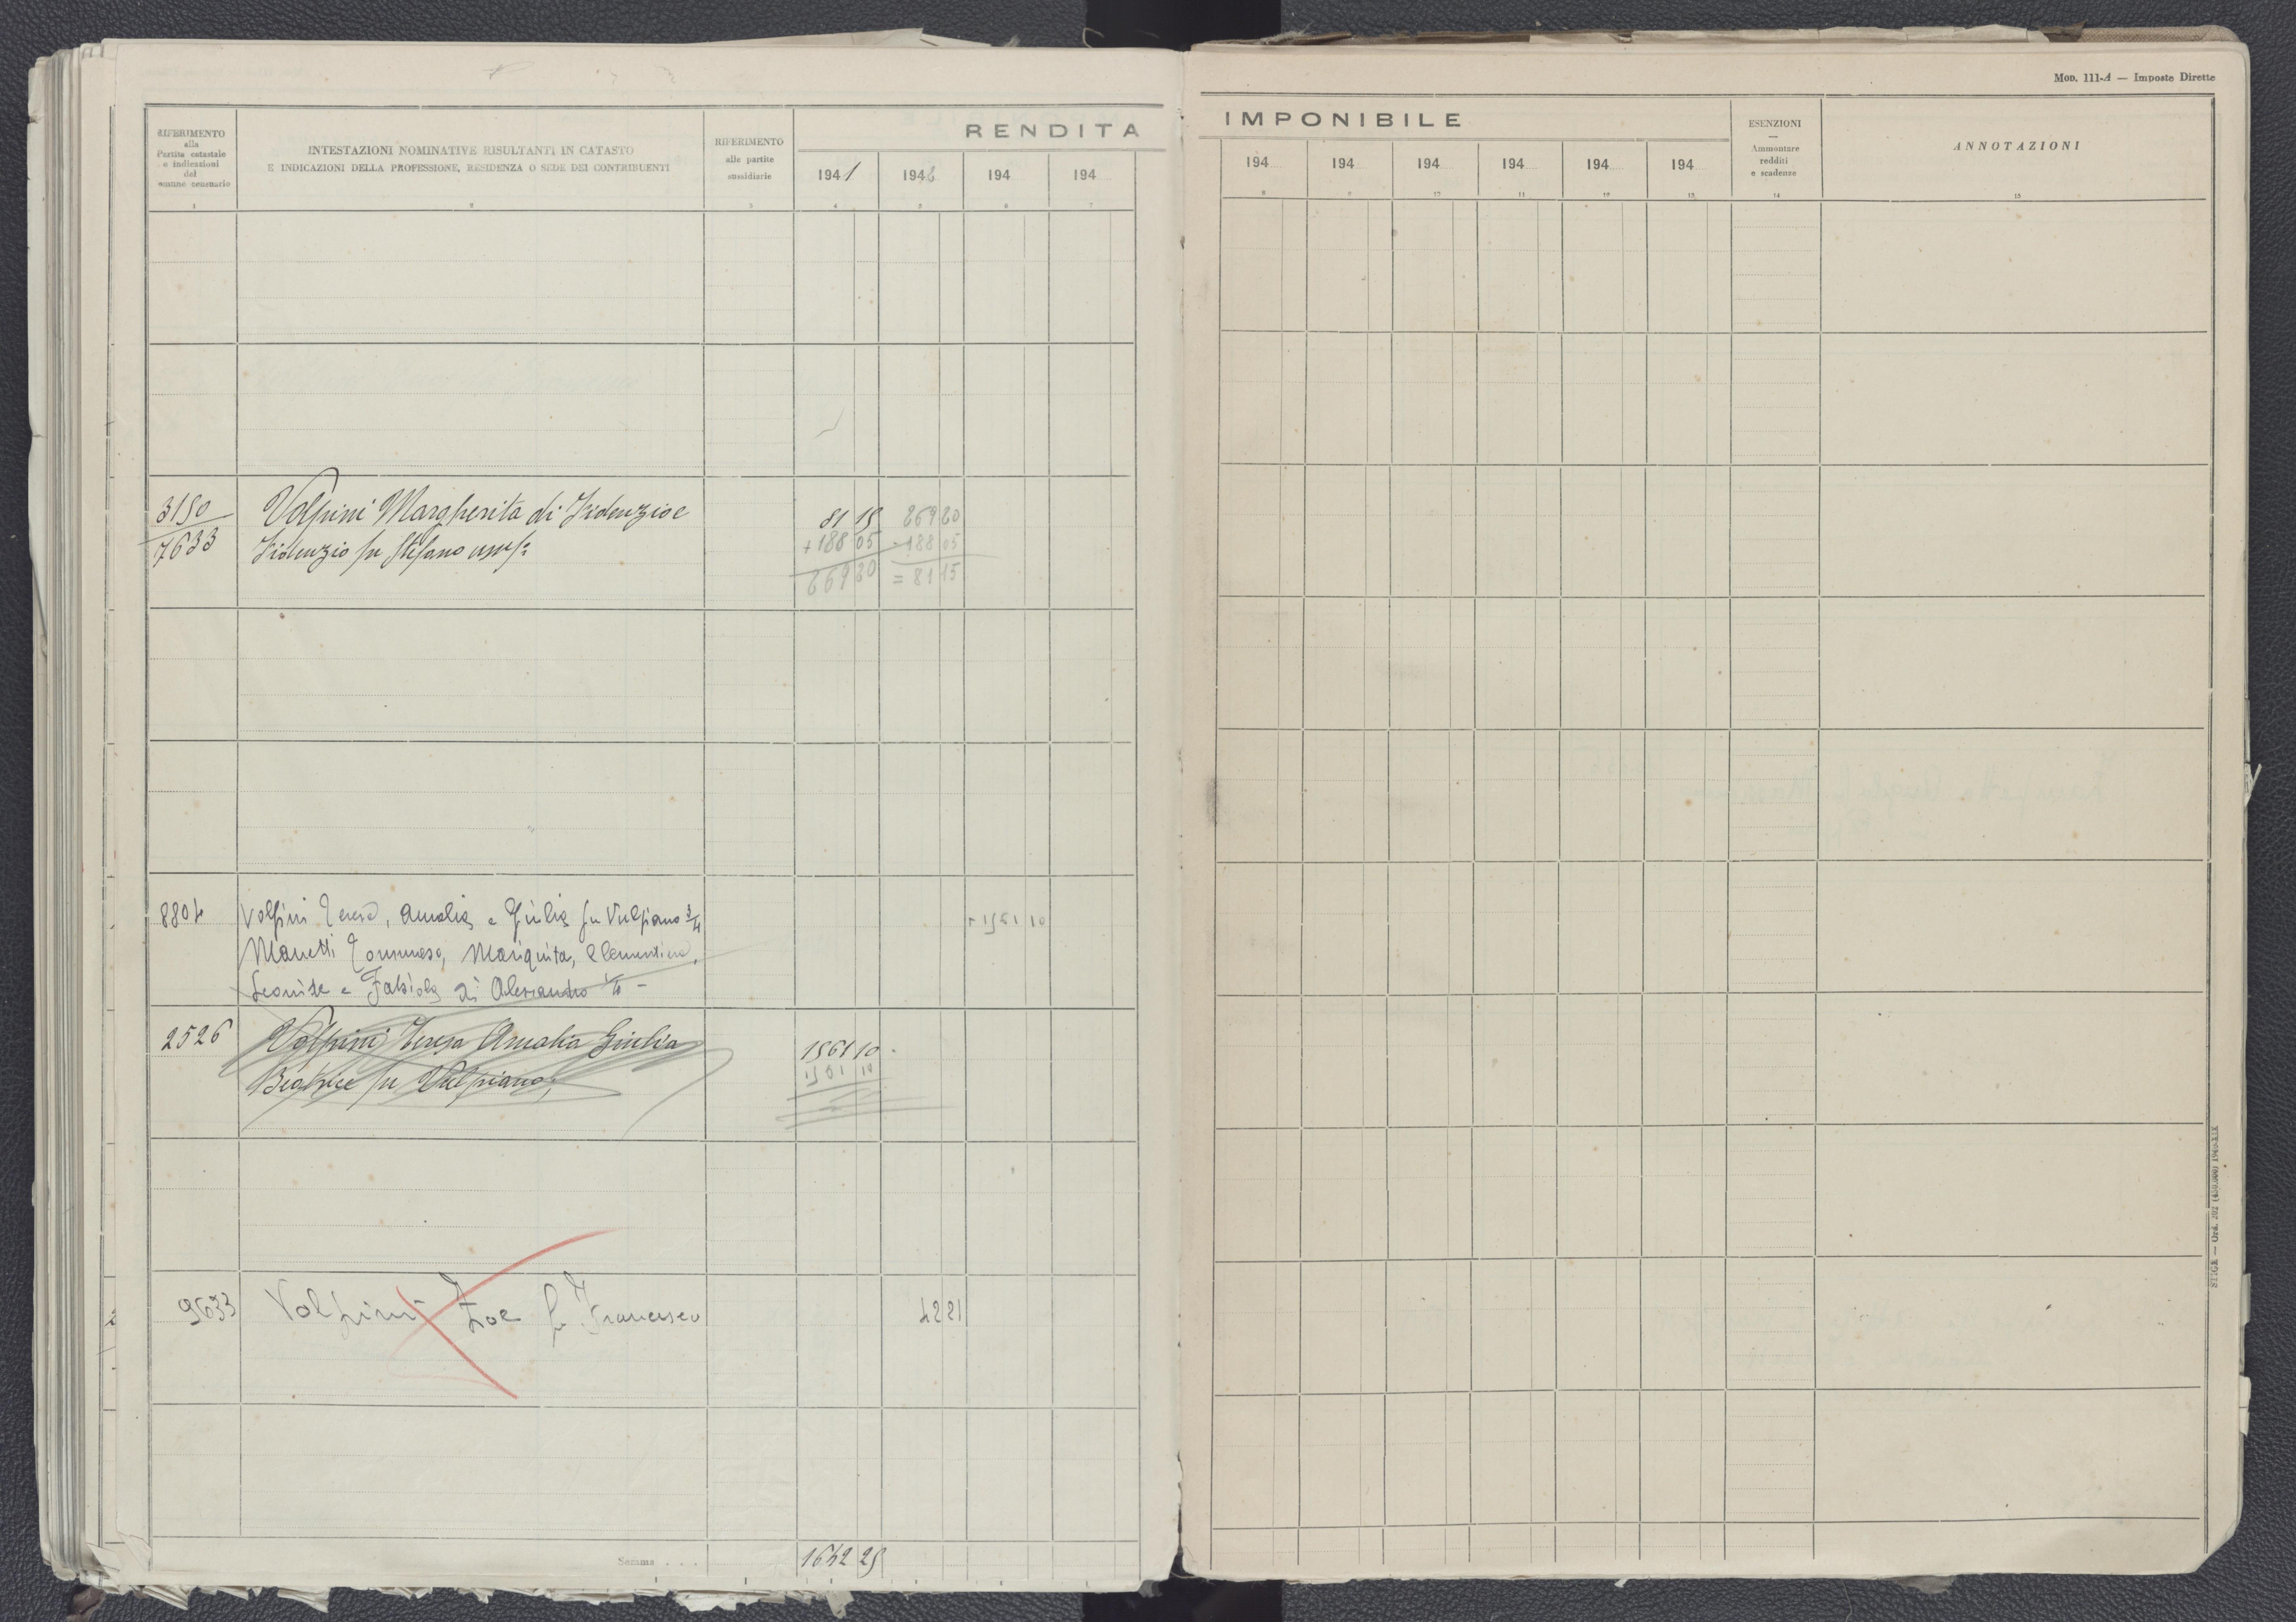 Mod. 111-A — Imposte Dirette
RENDITA IMPONIBILE
RIFERIMENTO
alla
Partita catastale
e indicazioni
del
comune censuario
INTESTAZIONI NOMINATIVE RISULTANTI IN CATASTO
E INDICAZIONI DELLA PROFESSIONE, RESIDENZA O SEDE DEI CONTRIBUENTI
RIFERIMENTO
alle partite
sussidiarie
1941 1942 194 194
194 194 194 194 194 194
ESENZIONI
—
Ammontare
redditi
e scadenze
ANNOTAZIONI
1 2 3 4 5 6 7 8 9 10 11 12 13 14 15
3150 Volpini Margherita di Fidenzio e 81 15 269 20
7633 Fidenzio fu Stefano +188 05 -188 05
269 20 = 81 15
8804 Volpini Teresa, Amalia e Giulia fu Vulpiano 3/4 + 1561 10
Manetti Tommaso, Mariquita, Clementina,
Leonide e Fabiola di Alessandro
2526 Volpini Teresa Amalia Giulia 1561 10
Beatrice fu Vulpiano; 1561 10
9633 Volpini Zoe fu Francesco 42 21
Somma . . . 1642 25
STIGR — Ord. 202 (450.000) 1940-XIX